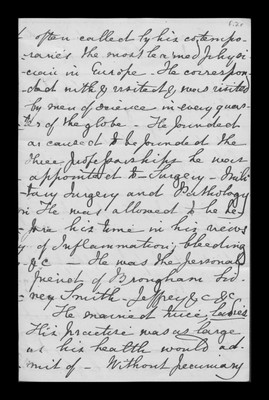 often called by his cotempo-
raries the most learned Physi
cian in Europe - He correspon
ded with & visited & was visited
by men of science in every quar
ters of the globe - He founded
or caused to be founded the
three professorships he was
appointed to - Surgery - Mili
tary Surgery and Pathology
He was allowed to be be-
fore his time in his views
of Inflammation, bleeding
&c - He was the personal
friend of Brougham Sid-
ney Smith - Jeffrey &c &c
He married twice, ladies
His practice was as large
as his health would ad-
mit of - Without pecuniary